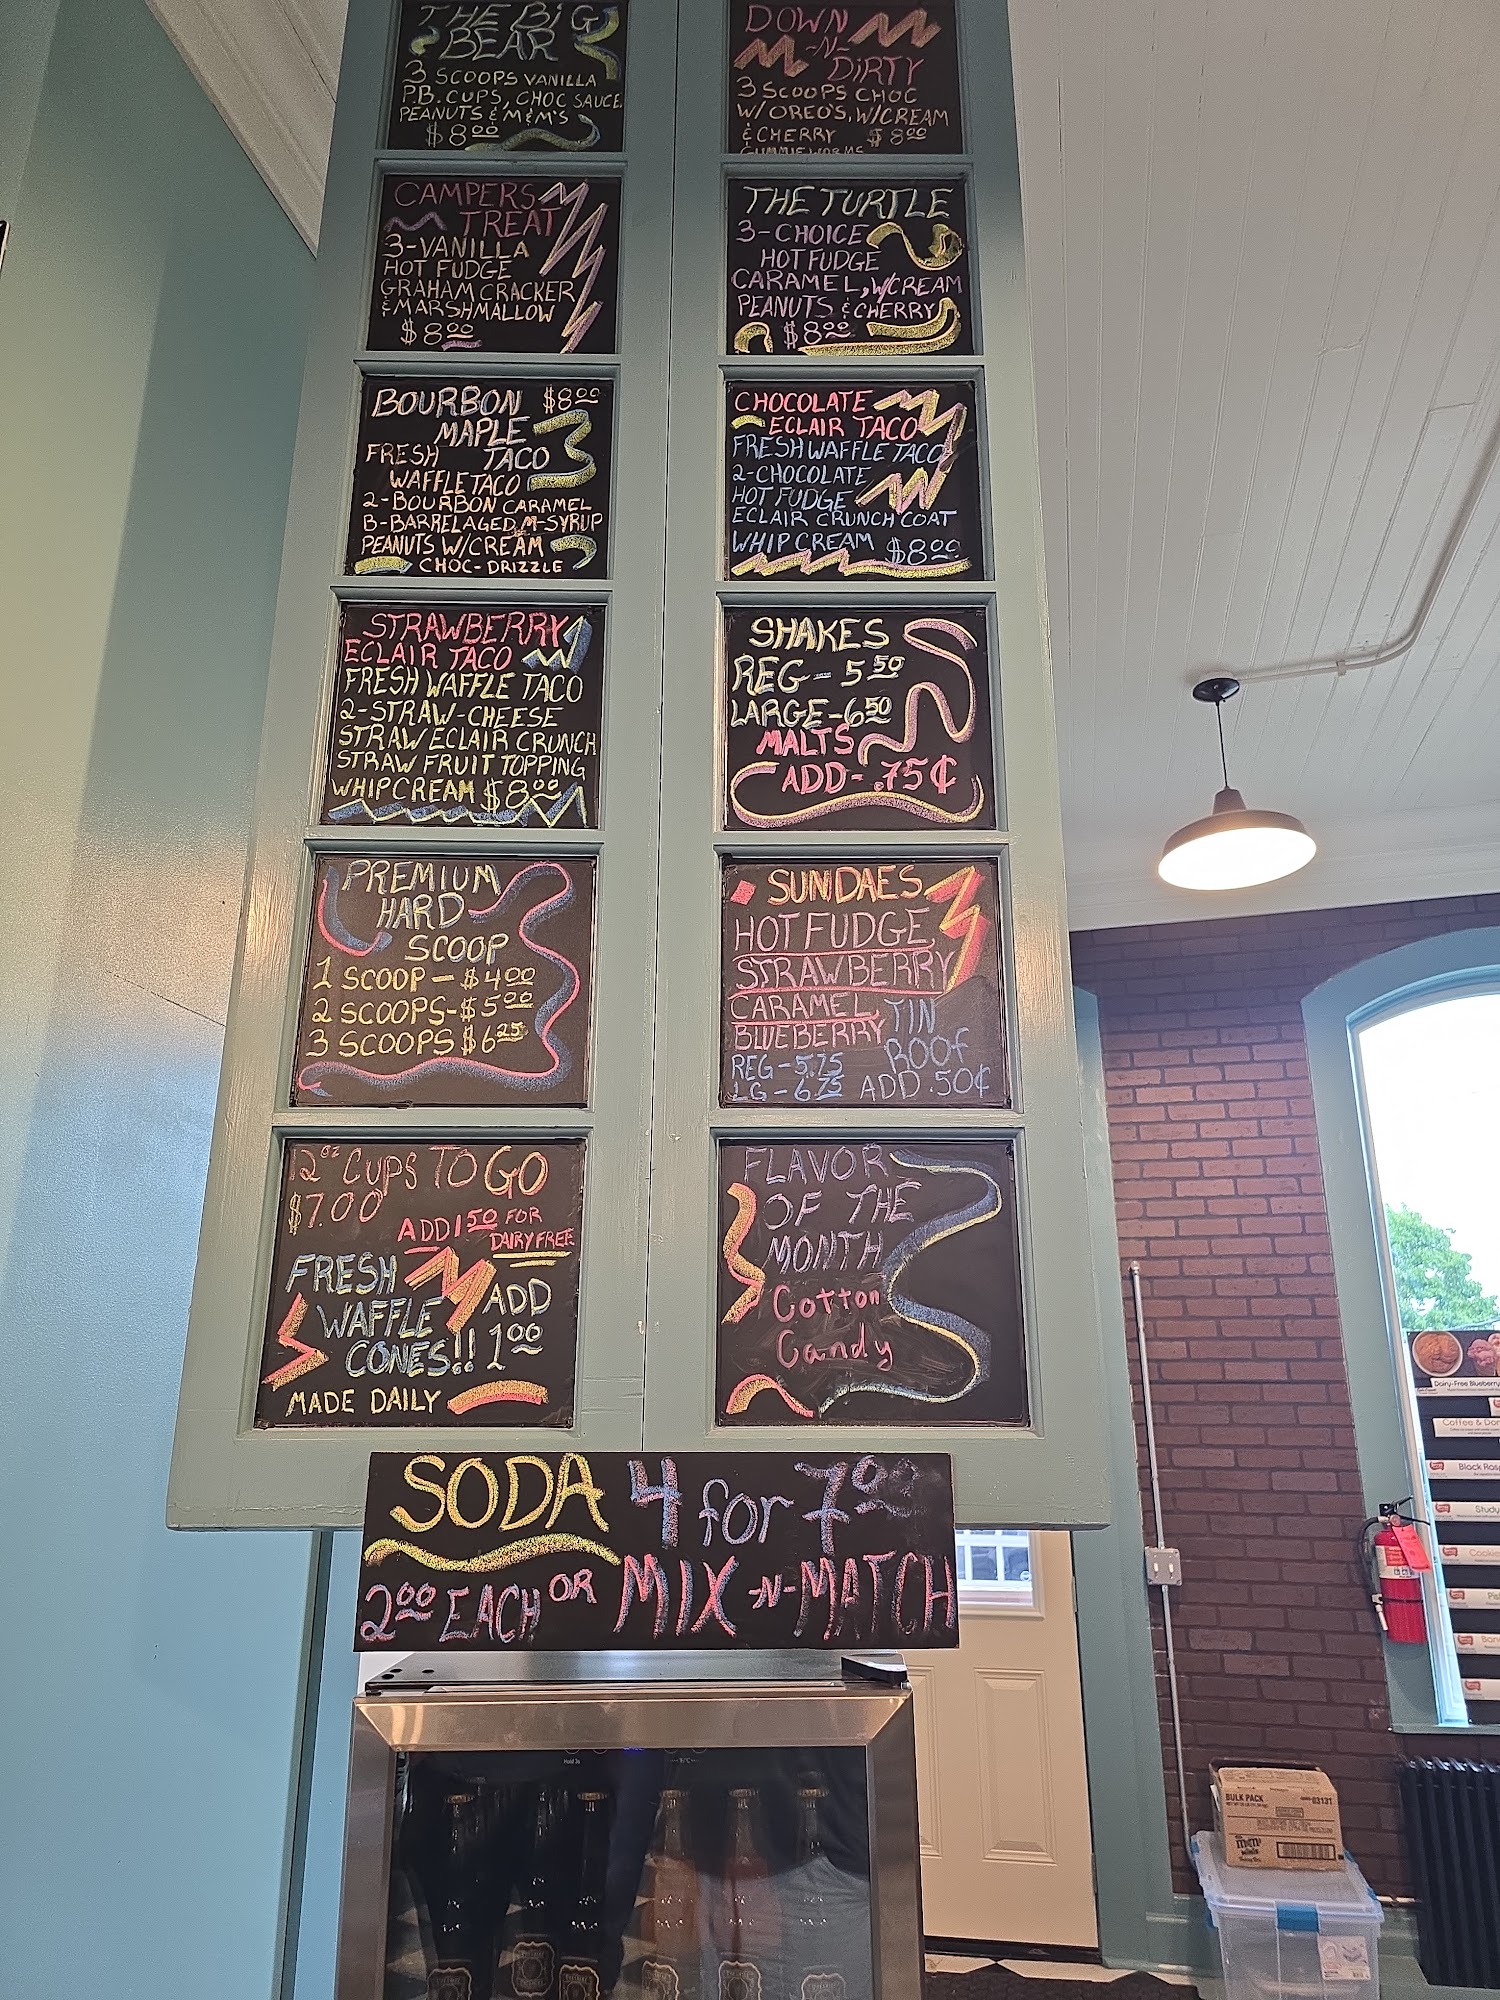 THE BIG
BEAR
3 SCOOPS VANILLA
P.B. CUPS, CHOC SAUCE,
PEANUTS & M&M'S
$8.00
DOWN
-N-
DIRTY
3 SCOOPS CHOC
W/OREO'S, W/CREAM
& CHERRY $8.00
GUMMIE WORMS
CAMPERS
TREAT
3-VANILLA
HOT FUDGE
GRAHAM CRACKER
& MARSHMALLOW
$8.00
THE TURTLE
3-CHOICE
HOT FUDGE
CARAMEL, W/CREAM
PEANUTS & CHERRY
$8.00
BOURBON $8.00
MAPLE
TACO
FRESH
WAFFLE TACO
2-BOURBON CARAMEL
B-BARREL AGED M-SYRUP
PEANUTS W/CREAM
CHOC-DRIZZLE
CHOCOLATE
ECLAIR TACO
FRESH WAFFLE TACO
2-CHOCOLATE
HOT FUDGE
ECLAIR CRUNCH COAT
WHIP CREAM $8.00
STRAWBERRY
ECLAIR TACO
FRESH WAFFLE TACO
2-STRAW-CHEESE
STRAW ECLAIR CRUNCH
STRAW FRUIT TOPPING
WHIP CREAM $8.00
SHAKES
REG - 5.50
LARGE - 6.50
MALTS
ADD - .75¢
PREMIUM
HARD
SCOOP
1 SCOOP - $4.00
2 SCOOPS - $5.00
3 SCOOPS $6.25
SUNDAES
HOT FUDGE,
STRAWBERRY
CARAMEL,
BLUEBERRY
REG - 5.75
LG - 6.75
TIN
ROOF
ADD .50¢
12 oz CUPS TO GO
$7.00
ADD 1.50 FOR
DAIRY FREE
FRESH
WAFFLE
CONES!!
ADD
1.00
MADE DAILY
FLAVOR
OF THE
MONTH
Cotton
Candy
SODA 4 for 7.00
2.00 EACH OR MIX-N-MATCH
Dairy-Free Blueberry
Coffee & Do
Black Ras
Study
BULK PACK
03131
m&m's
minis